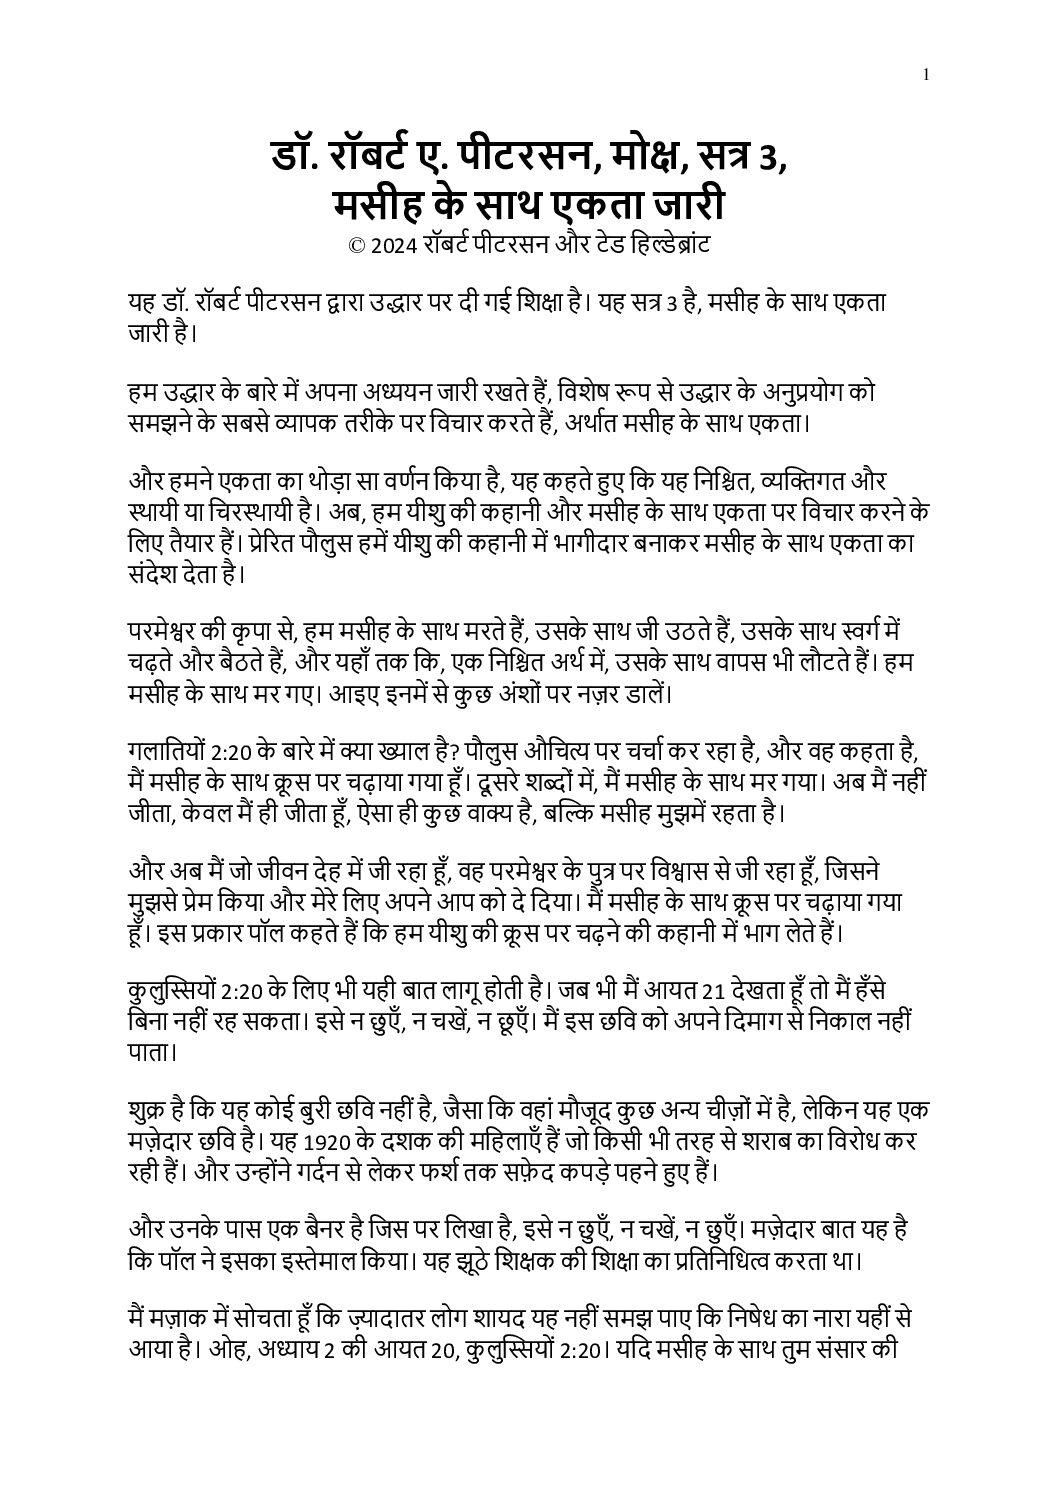 1
डॉ. रॉबर्ट ए. पीटरसन, मोक्ष, सत्र 3,
मसीह के साथ एकता जारी
© 2024 रॉबर्ट पीटरसन और टेड हिल्डेब्रांट
यह डॉ. रॉबर्ट पीटरसन द्वारा उद्धार पर दी गई शिक्षा है। यह सत्र 3 है, मसीह के साथ एकता
जारी है।
हम उद्धार के बारे में अपना अध्ययन जारी रखते हैं, विशेष रूप से उद्धार के अनुप्रयोग को
समझने के सबसे व्यापक तरीके पर विचार करते हैं, अर्थात मसीह के साथ एकता।
और हमने एकता का थोड़ा सा वर्णन किया है, यह कहते हुए कि यह निश्चित, व्यक्तिगत और
स्थायी या चिरस्थायी है। अब, हम यीशु की कहानी और मसीह के साथ एकता पर विचार करने के
लिए तैयार हैं। प्रेरित पौलुस हमें यीशु की कहानी में भागीदार बनाकर मसीह के साथ एकता का
संदेश देता है।
परमेश्वर की कृपा से, हम मसीह के साथ मरते हैं, उसके साथ जी उठते हैं, उसके साथ स्वर्ग में
चढ़ते और बैठते हैं, और यहाँ तक कि, एक निश्चित अर्थ में, उसके साथ वापस भी लौटते हैं। हम
मसीह के साथ मर गए। आइए इनमें से कुछ अंशों पर नज़र डालें।
गलातियों 2:20 के बारे में क्या ख्याल है? पौलुस औचित्य पर चर्चा कर रहा है, और वह कहता है,
मैं मसीह के साथ क्रूस पर चढ़ाया गया हूँ। दूसरे शब्दों में, मैं मसीह के साथ मर गया। अब मैं नहीं
जीता, केवल मैं ही जीता हूँ, ऐसा ही कुछ वाक्य है, बल्कि मसीह मुझमें रहता है।
और अब मैं जो जीवन देह में जी रहा हूँ, वह परमेश्वर के पुत्र पर विश्वास से जी रहा हूँ, जिसने
मुझसे प्रेम किया और मेरे लिए अपने आप को दे दिया। मैं मसीह के साथ क्रूस पर चढ़ाया गया
हूँ। इस प्रकार पॉल कहते हैं कि हम यीशु की क्रूस पर चढ़ने की कहानी में भाग लेते हैं।
कुलुस्सियों 2:20 के लिए भी यही बात लागू होती है। जब भी मैं आयत 21 देखता हूँ तो मैं हँसे
बिना नहीं रह सकता। इसे न छुएँ, न चखें, न छूएँ। मैं इस छवि को अपने दिमाग से निकाल नहीं
पाता।
शुक्र है कि यह कोई बुरी छवि नहीं है, जैसा कि वहां मौजूद कुछ अन्य चीज़ों में है, लेकिन यह एक
मज़ेदार छवि है। यह 1920 के दशक की महिलाएँ हैं जो किसी भी तरह से शराब का विरोध कर
रही हैं। और उन्होंने गर्दन से लेकर फर्श तक सफ़ेद कपड़े पहने हुए हैं।
और उनके पास एक बैनर है जिस पर लिखा है, इसे न छुएँ, न चखें, न छुएँ। मज़ेदार बात यह है
कि पॉल ने इसका इस्तेमाल किया। यह झूठे शिक्षक की शिक्षा का प्रतिनिधित्व करता था।
मैं मज़ाक में सोचता हूँ कि ज़्यादातर लोग शायद यह नहीं समझ पाए कि निषेध का नारा यहीं से
आया है। ओह, अध्याय 2 की आयत 20, कुलुस्सियों 2:20। यदि मसीह के साथ तुम संसार की